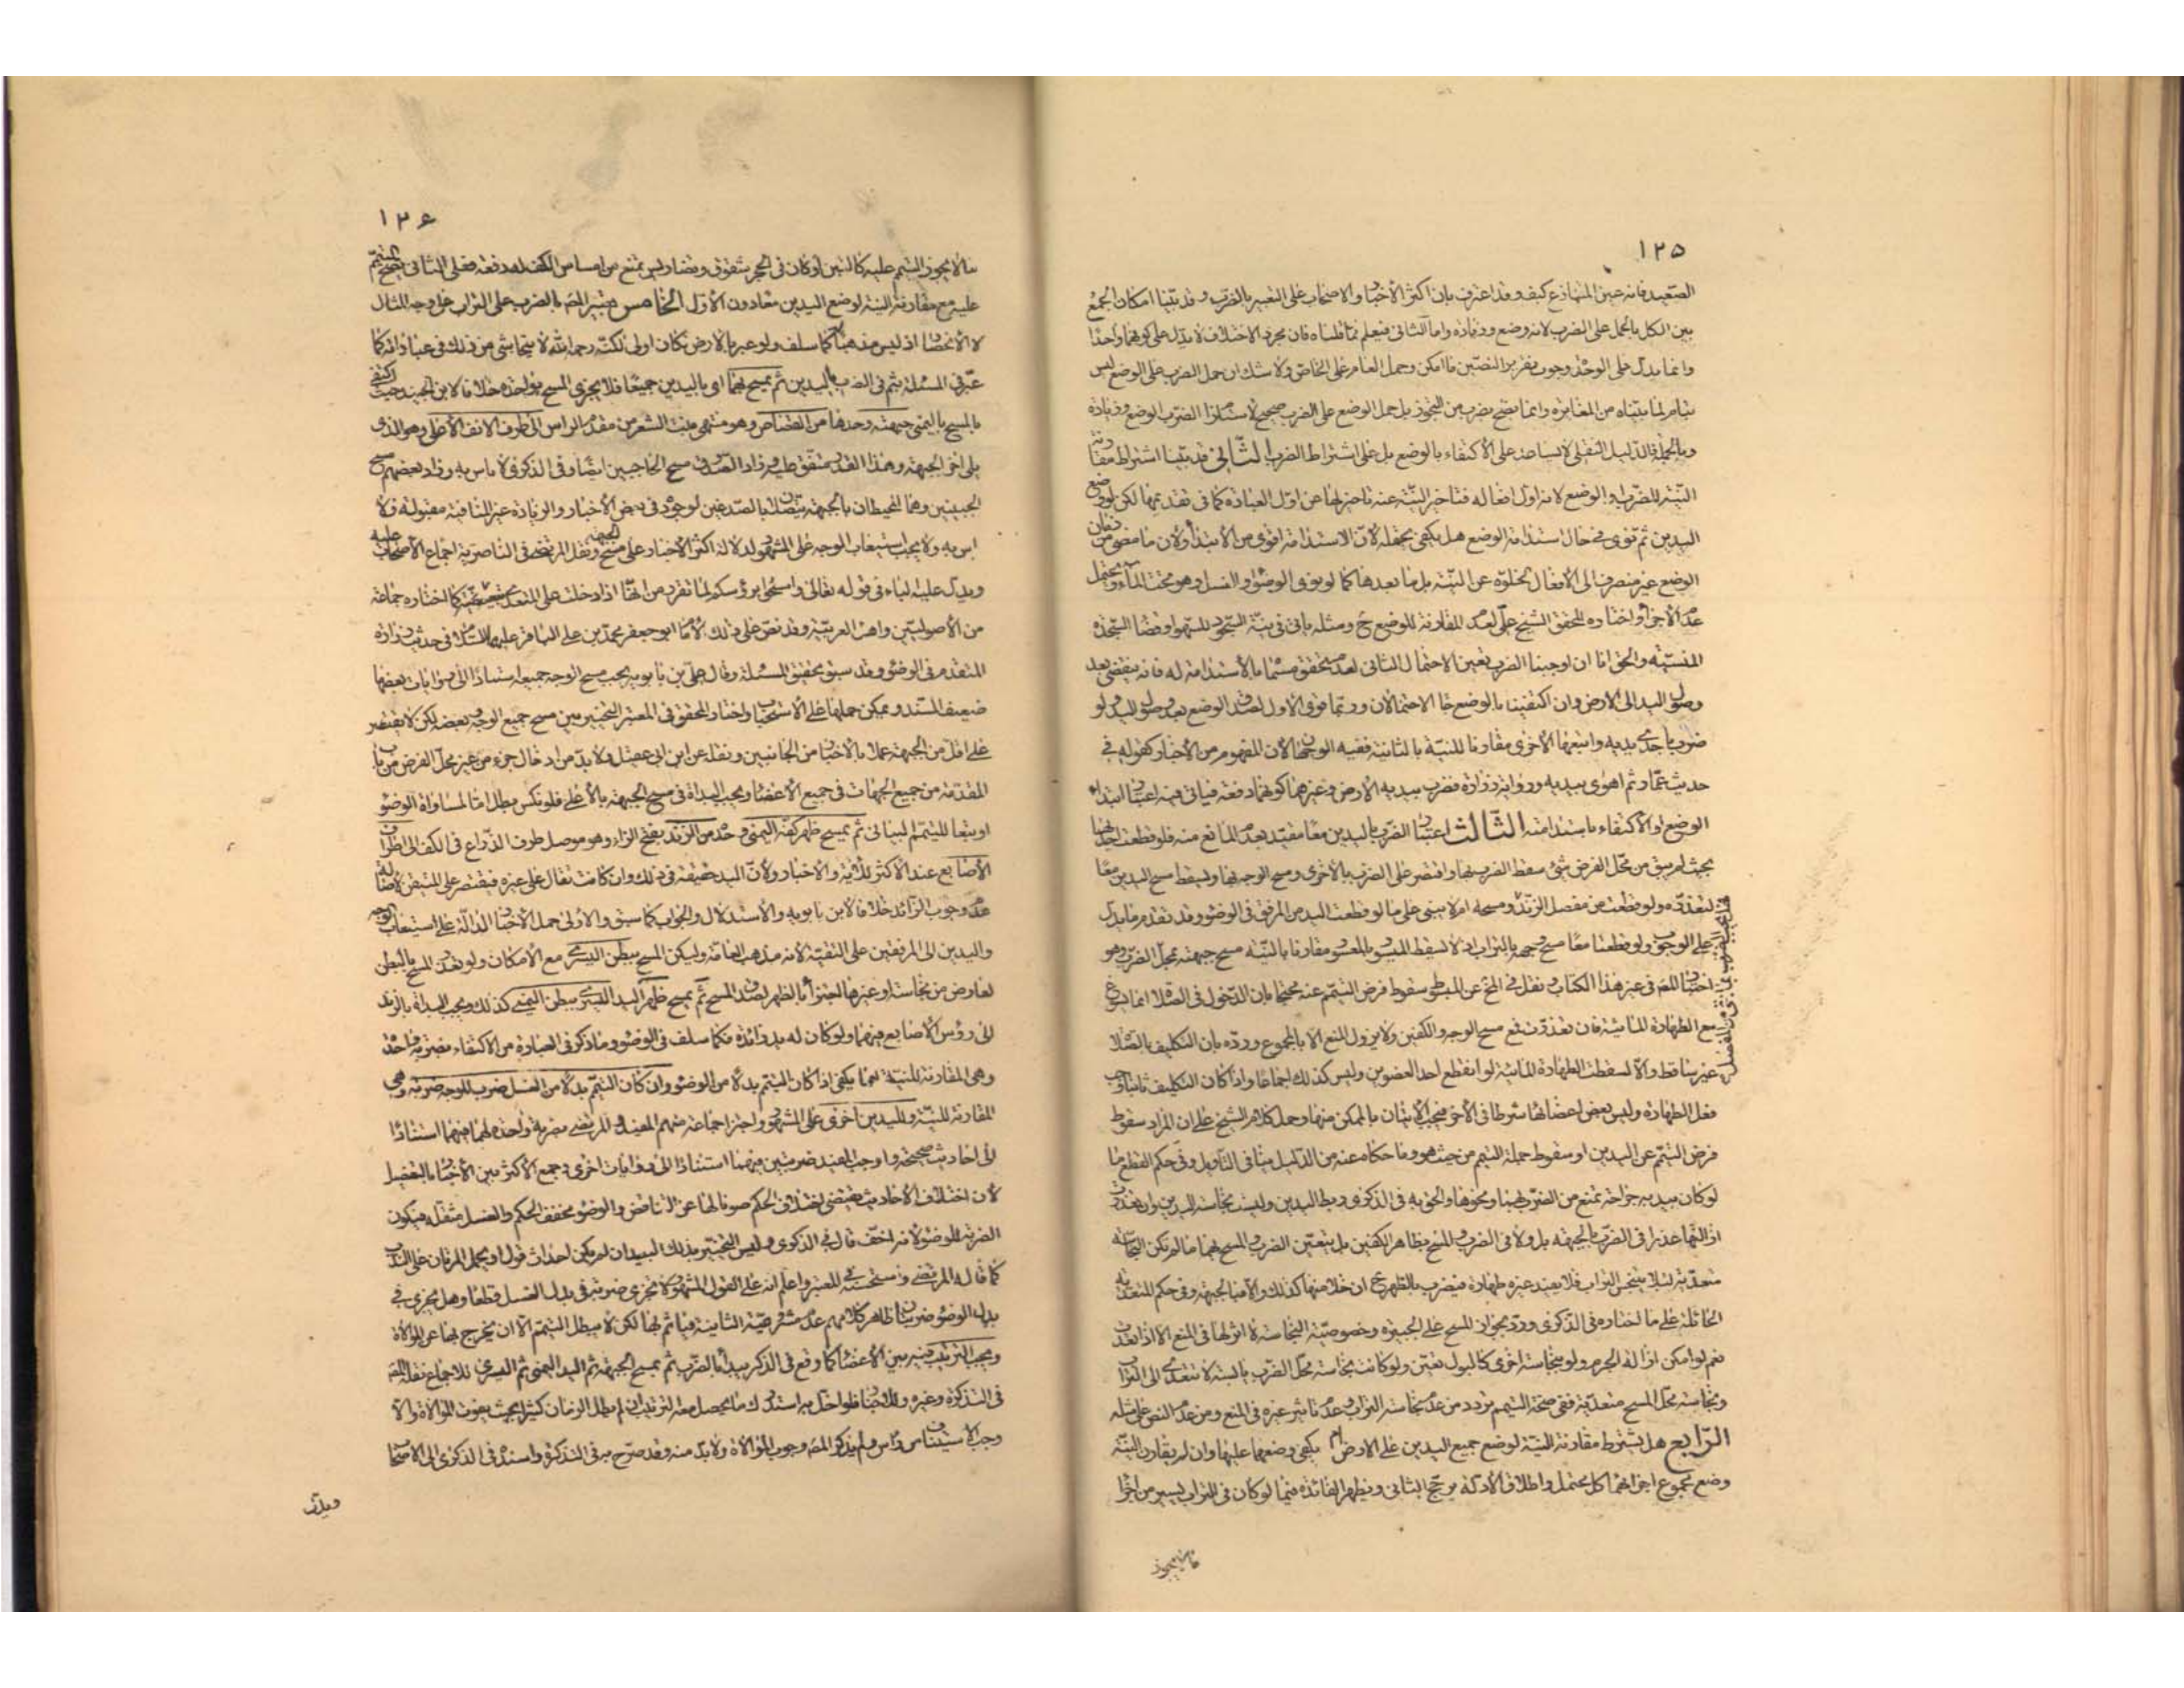 ١٢٥
الصعيد فانه عين المنازع كيف وقد اعترف بان اكثر الأخبار والاصحاب على التعبير بالضرب وقد بيّنا امكان الجمع
بين الكل بالحمل على الضرب لانه وضع وزيادة واما الثانى فيعلم مما قلناه فان مجرد الاختلاف لا يدل على كونهما واحدا
وانما يدل على الوحدة وجوب تقرير النصين ما امكن وحمل العام على الخاص ولا شك ان حمل الضرب على الوضع ليس
بتام لما بيّناه من المغايرة وانما يصح بضرب من التجوز بل حمل الوضع على الضرب صحيح لاستلزام الضرب الوضع وزيادة
وبالجملة فالدليل النقلى لا يساعد على الاكتفاء بالوضع بل على اشتراط الضرب الثانى قد بيّنا اشتراط مقارنة
النيّة للضرب او الوضع لانه اول افعاله فتاخير النيّة عنه تاخير لها عن اوّل العبادة كما فى تقديمها لكن لو وضع
اليدين ثم نوى فى حال استدامة الوضع هل يكفى يحتمله لأن الاستدامة اقوى من الابتداء ولان ما مضى من زمان
الوضع غير منصرف الى الأفعال لخلوّه عن النيّة بل ما بعدها كما لو نوى الوضوء او الغسل وهو تحت الماء ويحتمل
عدم الأجزاء واختاره المحقق الشيخ على لعدم المقارنة للوضع ح ومثله ياتى فى نيّة السجود للسهو او قضاء السجدة
المنسيّة والحق انا ان اوجبنا الضرب تعين الاحتمال الثانى لعدم تحقق مسمّاه بالاستدامة له فانه ينقضى بعد
وصول اليد الى الارض وان اكتفينا بالوضع جاء الاحتمالان وربما قوى الاول لصدق الوضع بعد وصول اليد ولو
ضرب باحدى يديه واتبعها الأخرى مقارنا للنيّة بالثانية ففيه الوجهان الا ان المفهوم من الأخبار كقوله فى
حديث عمار ثم اهوى بيديه ورواية زرارة فضرب بيديه الارض وغيرهما كونهما دفعة فياتى فيه اعتبار ابتداء
الوضع او الأكتفاء باستدامته الثالث اعتبار الضرب باليدين معا مقيّد بعدم المانع منه فلو قطعت احداهما
بحيث لم يبق من محل الفرض شئ سقط الضرب بها واقتصر على الضرب بالأخرى ومسح الوجه بها ويسقط مسح اليدين معا
لتعذره ولو قطعت من مفصل الزند ومسحه ام لا يبنى على ما لو قطعت اليد من المرفق فى الوضوء وقد تقدم ما يدل
على الوجوب ولو قطعتا معا مسح وجهه بالتراب اذ لا يسقط الميسور بالمعسور مقارنا بالنيّة مسح جبهته بمحل الضرب وهو
اختيار المص فى غير هذا الكتاب ونقل فى المخ عن المبسوط سقوط فرض التيمم عنه محتجا بان الدخول فى الصلاة انما يسوغ
مع الطهارة المائية فان تعذرت فمع مسح الوجه والكفين ولا يزول المنع الا بالمجموع وردّه بان التكليف بالصلاة
غير ساقط والّا لسقطت الطهارة المائية لو انقطع احد العضوين وليس كذلك اجماعا واذا كان التكليف ثابتا وجب
فعل الطهارة وليس بعض اعضائها شرطا فى الأخر فيجب الأتيان بالممكن منها وحمل كلام الشيخ على ان المراد سقوط
فرض التيمّم عن اليدين او سقوط جملة التيمم من حيث هو وما حكاه عنه من الدليل ينافى التأويل وفى حكم القطع ما
لو كان بيديه جراحة تمنع من الضرب بهما ونحوها والحق به فى الذكرى ربط اليدين وليست نجاسة اليدين وان تعذرت
ازالتهما عذرا فى الضرب بالجبهة بل ولا فى الضرب والمسح بظاهر الكفين بل يتعيّن الضرب والمسح بهما ما لم تكن النجاسة
متعدّية لئلا ينجس التراب فلا يفيد غيره طهارة فيضرب بالظهر ح ان خلا منها كذلك والّا فبالجبهة وفى حكم المتعدية
الحائلة على ما اختاره فى الذكرى وردّ بجواز المسح على الجبيرة وخصوصيّة النجاسة لا اثر لها فى المنع الا اذا تعدت
نعم لو امكن ازالة الجرم ولو بنجاسة اخرى كالبول تعيّن ولو كانت نجاسة محل الضرب يابسة لا تتعدى الى التراب
ونجاسة محل المسح متعدّية ففى صحة التيمم تردد من عدم نجاسة التراب وعدم تاثير غيره فى المنع ومن عدم النص على مثله
الرابع هل يشترط مقارنة النيّة لوضع جميع اليدين على الارض ام يكفى وضعهما عليها وان لم يقارن النيّة
وضع مجموع اجزائهما كل محتمل واطلاق الأدلة يرجّح الثانى وتظهر الفائدة فيما لو كان فى التراب يسير من اجزاء
ما لا يجوز
١٢٦
ما لا يجوز التيمم عليه كالتبن او كان فى الحجر شقوق ومضار ليس تمنع من امساس الكف له دفعة فعلى الثانى يصح التيمم
عليه مع مقارنة النيّة لوضع اليدين معا دون الأول الخامس تعبير المص بالضرب على التراب على وجه المثال
لا الانحصار اذ ليس مذهبا كما سلف ولو عبر بالارض لكان اولى لكنّه رحمه اللّه لا يتحاشى من ذلك فى عباراته كما
عبّر فى المسئلة بثم فى الضرب باليدين ثم يمسح بهما اى باليدين جميعا فلا يجزى المسح بواحدة خلافا لابن الجنيد حيث اكتفى
بالمسح باليمنى جبهته وحدها من القصاص وهو منتهى منبت الشعر من مقدّم الراس الى طرف الانف الأعلى وهو الذى
يلى اخر الجبهة وهذا القدر متفق عليه وزاد الصدوق مسح الحاجبين ايضا وفى الذكرى لا باس به وزاد بعضهم مسح
الجبينين وهما المحيطان بالجبهة يتصلان بالصدغين لوجوده فى بعض الأخبار والزيادة غير المنافية مقبولة ولا
باس به ولا يجب استيعاب الوجه على المشهور لدلالة اكثر الأخبار على مسح الجبهة ونقل المرتضى فى الناصرية اجماع الأصحاب عليه
ويدل عليه الباء فى قوله تعالى وامسحوا برؤسكم لما تقرر من انّها اذا دخلت على المتعدى تبعّضته كما اختاره جماعة
من الأصوليين واهل العربيّة وقد نص على ذلك الامام ابو جعفر محمد بن على الباقر عليهما السلام فى حديث زرارة
المتقدم فى الوضوء وقد سبق تحقيق المسئلة وقال على بن بابويه يجب مسح الوجه جميعه استنادا الى روايات بعضها
ضعيف السند ويمكن حملها على الأستحباب واختار المحقق فى المعتبر التخيير بين مسح جميع الوجه وبعضه لكن لا يقتصر
على اقل من الجبهة عملا بالأخبار من الجانبين ونقله عن ابن ابى عقيل ولا بدّ من ادخال جزء من غير محل الفرض من باب
المقدّمة من جميع الجهات فى جميع الأعضاء ويجب البدأة فى مسح الجبهة بالأعلى فلو نكس بطل اما لمساواة الوضوء
او تبعا للتيمّم البيانى ثم يمسح ظهر كفّه اليمنى وحدّه من الزند بفتح الزاء وهو موصل طرف الذراع فى الكف الى اطراف
الأصابع عند الأكثر للآية والاخبار ولأنّ اليد حقيقة فى ذلك وان كانت تقال على غيره فيقتصر على المتيقن لاصالة
عدم وجوب الزائد خلافا لابن بابويه والأستدلال والجواب كما سبق والأولى حمل الأخبار الدالّة على استيعاب الوجه
واليدين الى المرفقين على التقيّة لأنه مذهب العامّة وليكن المسح ببطن اليسرى مع الأمكان ولو تعذر المسح بالبطن
لعارض من نجاسة او غيرها اجتزأ بالظهر لصدق المسح ثم يمسح ظهر اليد اليسرى ببطن اليمنى كذلك ويجب البدأة بالزند
الى رؤس الأصابع فيهما ولو كان له يد زائدة فكما سلف فى الوضوء وما ذكر فى العبارة من الاكتفاء بضربة واحدة
وهى المقارنة للنيّة انما يكفى اذا كان التيمّم بدلا من الوضوء وان كان التيمّم بدلا من الغسل ضرب للوجه ضربة وهى
المقارنة للنيّة ولليدين اخرى على المشهور واجتزأ جماعة منهم المفيد والمرتضى بضربة واحدة لهما فيهما استنادا
الى احاديث صحيحة واوجب المفيد ضربتين فيهما استنادا الى روايات اخرى وجمع الأكثر بين الأخبار بالتفصيل
لأن اختلاف الأحاديث يقتضى اختلاف الحكم صونا لها عن التناقض والوضوء مخفف الحكم والغسل مثقله فيكون
الضربة للوضوء لانه اخف قال فى الذكرى وليس التخيير بذلك البعيد ان لم يكن احداث قول او يحمل المرتان على الندب
كما قاله المرتضى واستحبّه فى المعتبر واعلم انه على القول المشهور لا تجزى ضربة فى بدل الغسل قطعا وهل يجزى فى
بدل الوضوء ضربتان ظاهر كلامهم عدم مشروعيّة الثانية فيأثم بها لكن لا يبطل التيمّم الا ان يخرج بها عن الموالاة
ويجب الترتيب فيه بين الأعضاء كما وقع فى الذكر يبدأ بالضرب ثم بمسح الجبهة ثم اليد اليمنى ثم اليسرى للاجماع نقله المص
فى التذكرة وغيره وللأخبار فلو اخل به استدرك ما يحصل معه الترتيب ان لم يطل الزمان كثيرا بحيث يفوت الموالاة والّا
وجب الأستيناف من راس ولم يذكر المص وجوب الموالاة ولا بدّ منه وقد صرّح به فى التذكرة واسنده فى الذكرى الى الأصحاب
ويدل